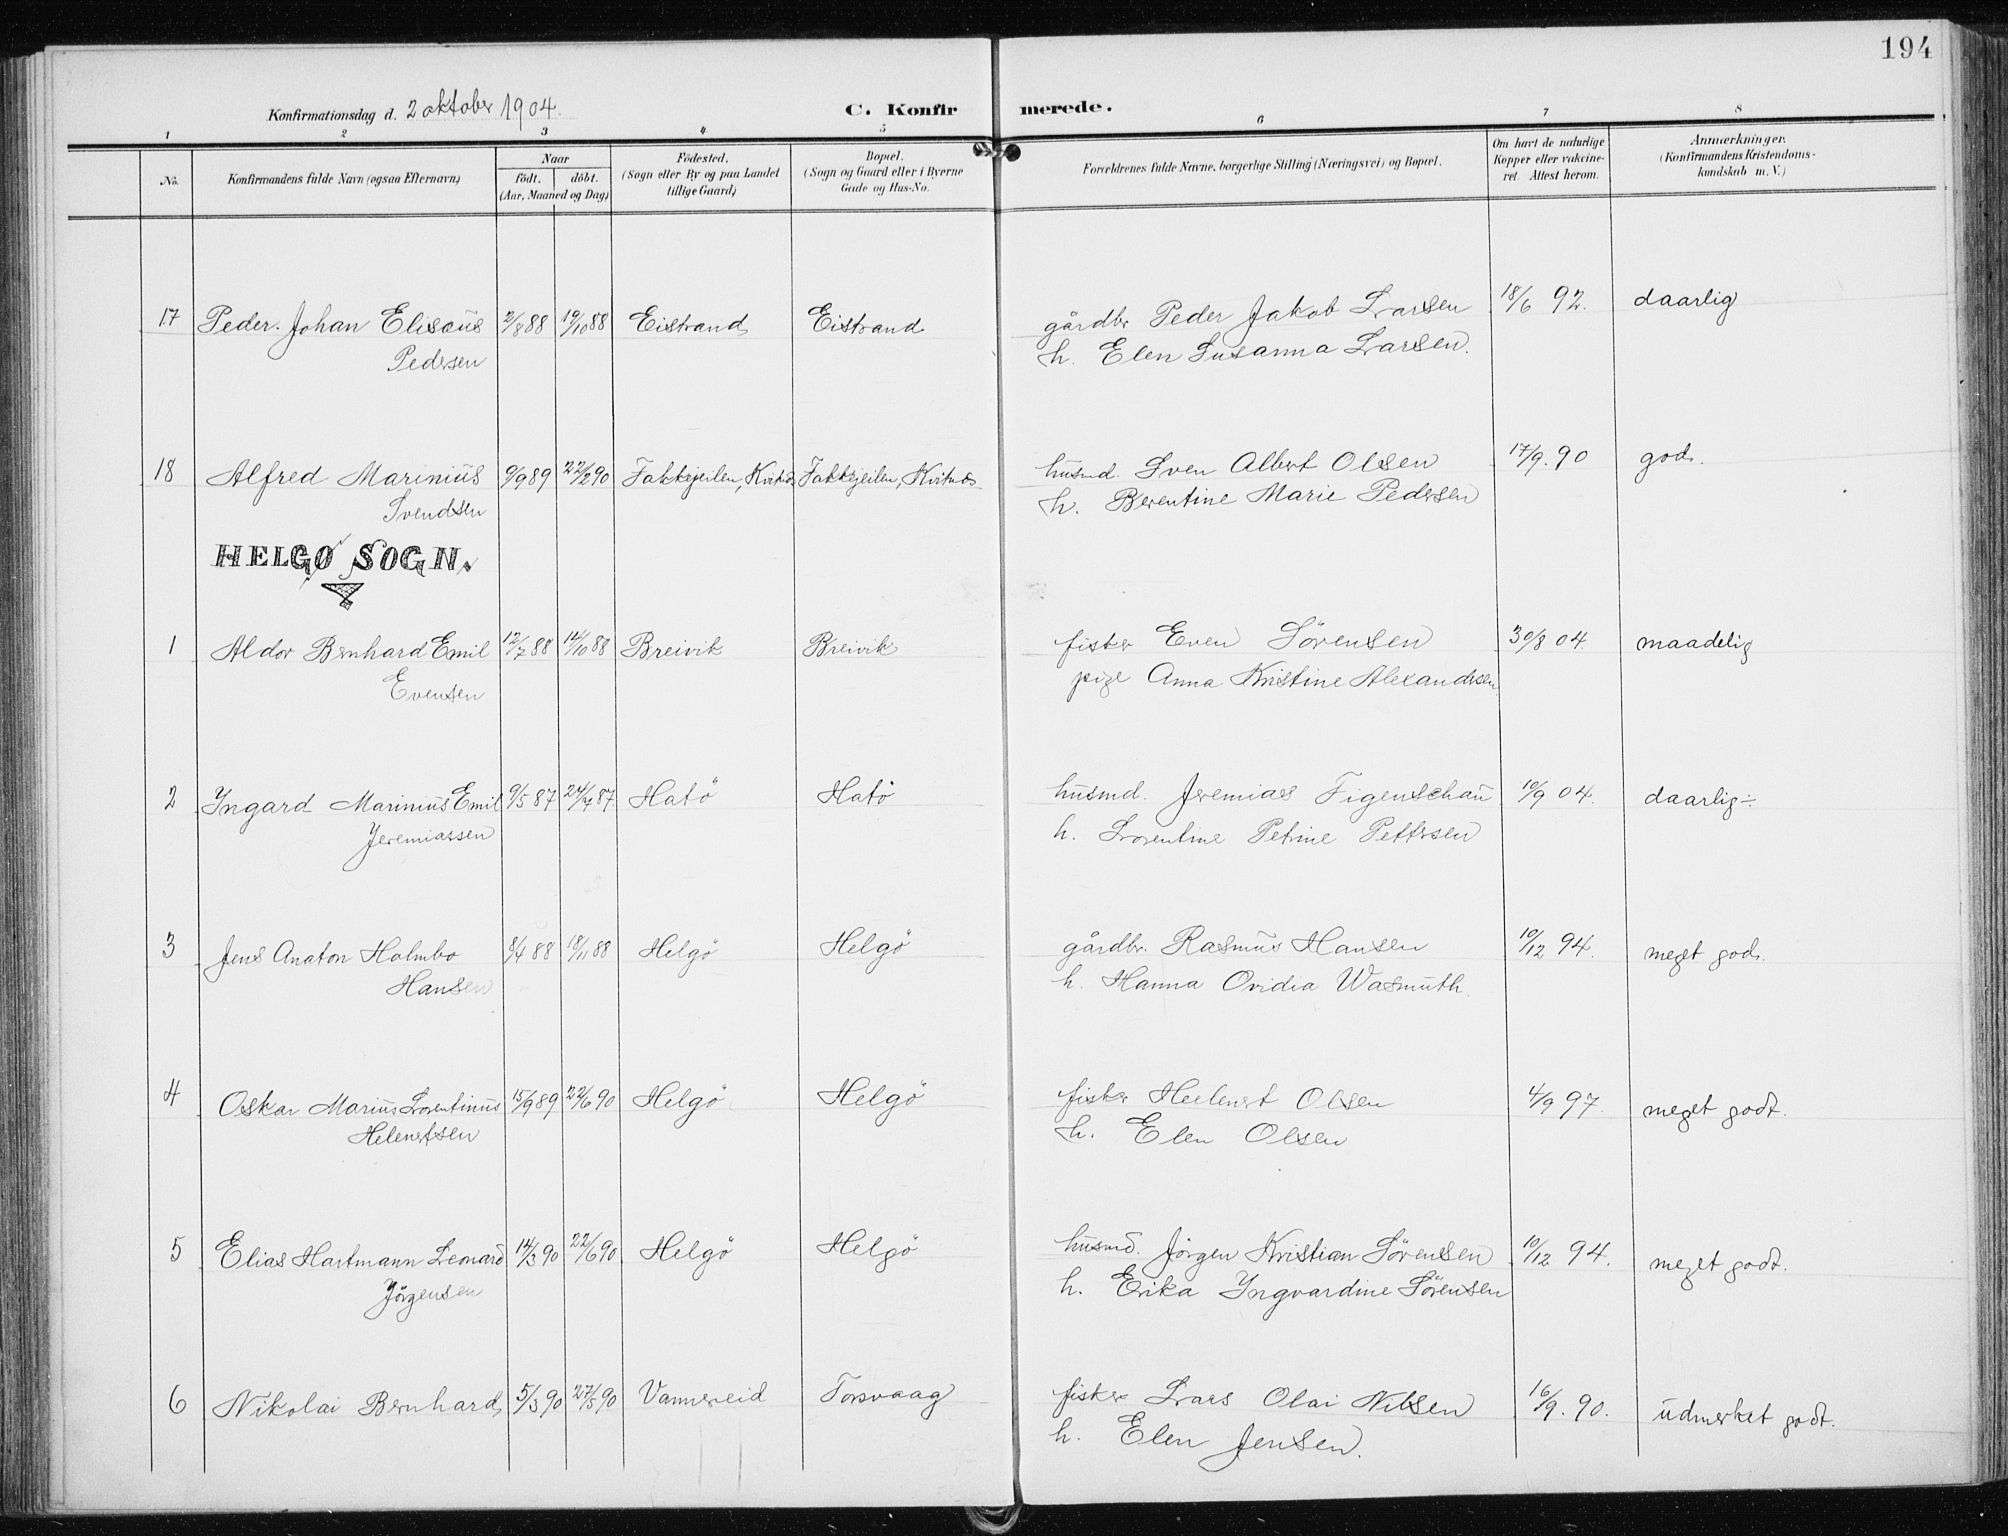 194
Konfirmationsdag d. 2 oktober 1904.
C. Konfirmerede.
1 2 3 4 5 6 7 8
No.
Konfirmandens fulde Navn (ogsaa Efternavn)
Naar
födt. döbt.
(Aar, Maaned og Dag)
Födested.
(Sogn eller By og paa Landet
tillige Gaard)
Bopæl.
(Sogn og Gaard eller i Byerne
Gade og Hus-No.
Forældrenes fulde Navne, borgerlige Stilling (Næringsvei) og Bopæl.
Om havt de naturlige
Kopper eller vakcine-
ret. Attest herom.
Anmærkninger.
(Konfirmandens Kristendoms-
kundskab m. V.)
17 Peder Johan Elisæus 2/8 88 19/10 88 Eistrand Eistrand gårdbr Peder Jakob Larsen 18/6 92. daarlig
Pedersen h. Elen Susanna Larsen.
18 Alfred Marinius 9/9 89 22/2 90 Fakkejeilen, Kvitnæs Fakkejeilen, Kvitnæs husmd. Sven Albert Olsen 17/9. 90 god.
Svendsen h. Berentine Marie Pedersen
HELGØ SOGN.
1 Aldor Bernhard Emil 12/7 88 14/10 88 Breivik Breivik fisker Even Sörensen 30/8 04. maadelig
Evensen pige Anna Kristine Alexandersen
2 Ingard Marinius Emil 9/5 87 24/7 87. Hatö Hatö husmd. Jeremias Figenschau 10/9 04. daarlig ÷.
Jeremiassen h. Lorentine Petrine Pettersen
3 Jens Anaton Holmbo 8/4 88 18/11 88 Helgö Helgö gårdbr. Rasmus Hansen 10/12 94. meget god.
Hansen h. Hanna Ovidia Wasmuth.
4 Oskar Marius Lorentinus 15/9 89 22/6 90 Helgö Helgö fisker Helenert Olsen 4/9 97. meget godt.
Helenertsen h. Elen Olsen
5 Elias Hartmann Leonard 14/3 90 22/6 90 Helgö Helgö husmd. Jörgen Kristian Sörensen 10/12 94. meget godt.
Jörgensen h. Erika Ingvardine Sörensen
6 Nikolai Bernhard 5/3 90 27/5 90 Vannereid Torsvaag fisker Lars Olai Nilsen 16/9. 90. udmerket godt.
h. Elen Jensen.